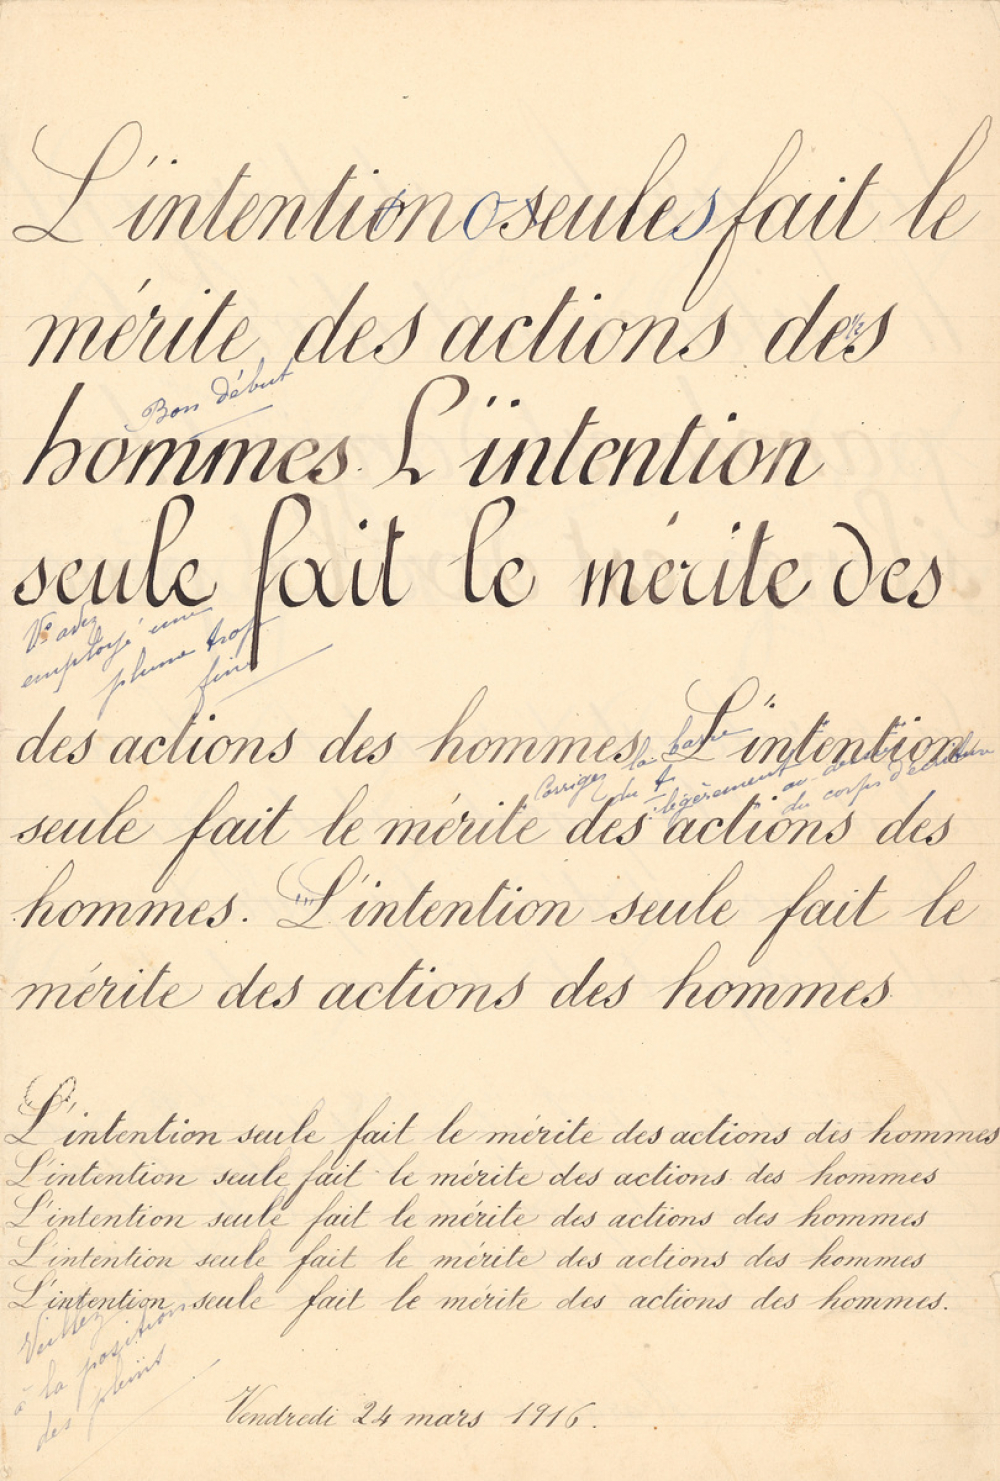 L'intention seule fait le
mérite des actions des
Bon début
hommes. L'intention
seule fait le mérite des
Vs avez
employé une
plume trop
fine
des actions des hommes. L'intention
Corriger la barre
du t
légèrement au-dessus
du corps d'écriture
seule fait le mérite des actions des
hommes. L'intention seule fait le
mérite des actions des hommes
L'intention seule fait le mérite des actions des hommes
L'intention seule fait le mérite des actions des hommes
L'intention seule fait le mérite des actions des hommes
L'intention seule fait le mérite des actions des hommes
L'intention seule fait le mérite des actions des hommes.
Veillez
à la position
des pleins
Vendredi 24 mars 1916.